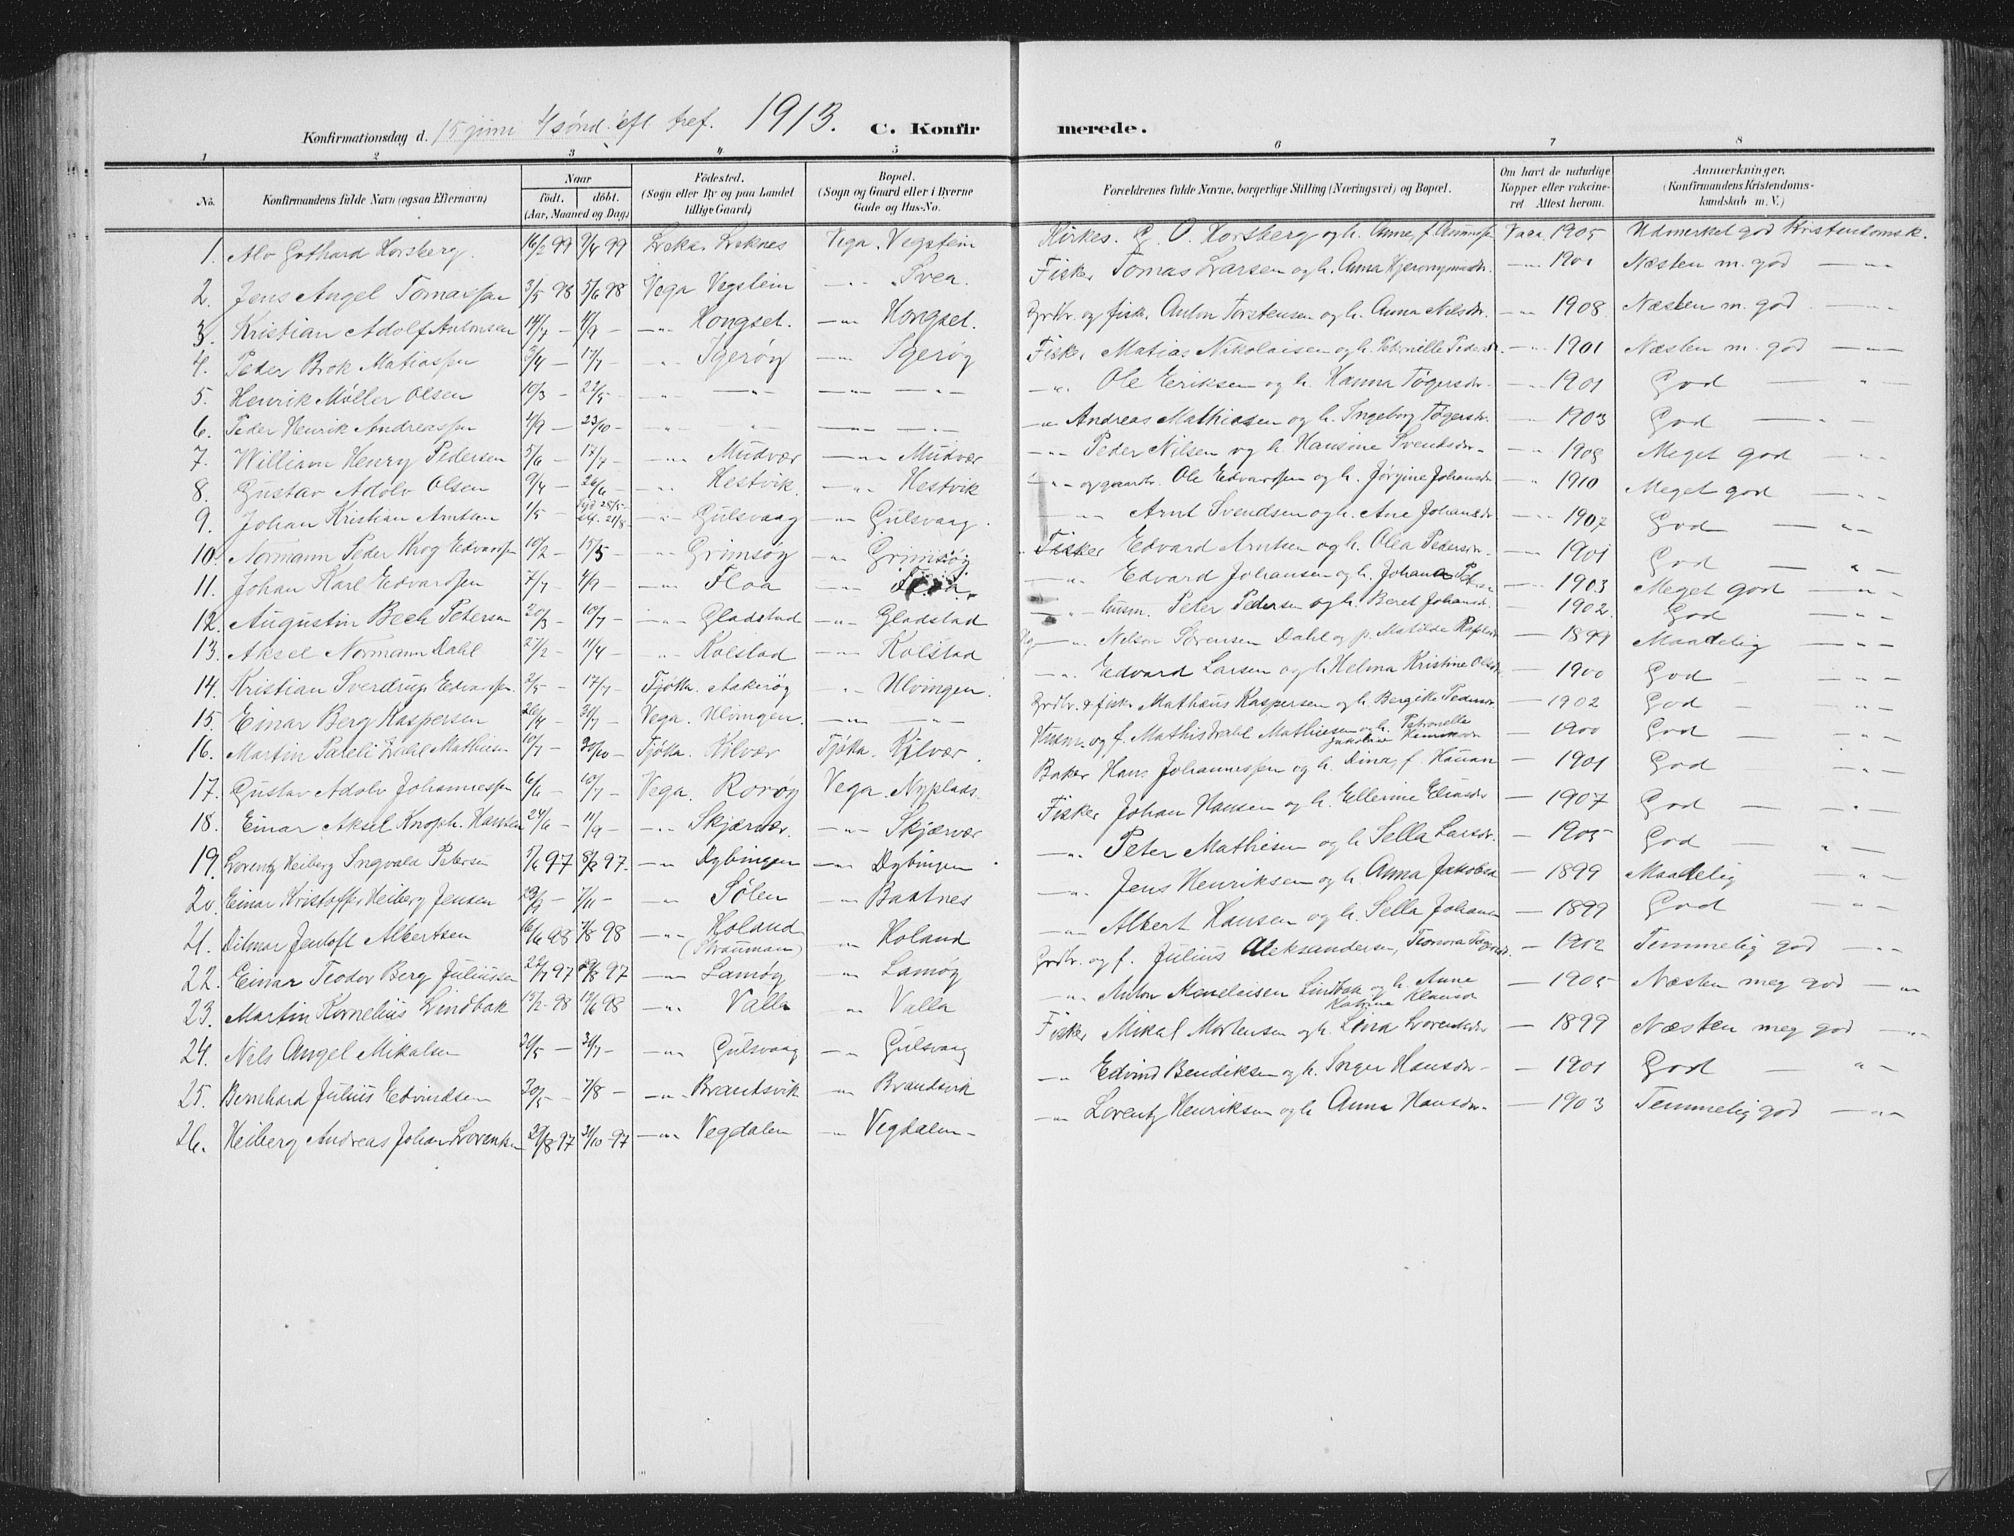 Konfirmationsdag d. 15 juni 4 sønd. eft tref. 1913. C. Konfirmerede.
1 2 3 4 5 6 7 8
No. Konfirmandens fulde Navn (ogsaa Efternavn) Naar født. døbt. (Aar, Maaned og Dag) Fødested. (Sogn eller By og paa Landet tillige Gaard) Bopæl. (Sogn og Gaard eller i Byerne Gade og Hus-No. Forældrenes fulde Navne, borgerlige Stilling (Næringsvei) og Bopæl. Om havt de naturlige Kopper eller vakcineret Attest herom. Anmerkninger. (Konfirmandens Kristendomskundskab m. V.)
1. Alv Gothard Horsberg 16/2 99 2/4 99 Leka Leknes Vega. Vegstein Kirkes. G. O. Horsberg og h. Anne, f. Vacc. 1905 Udmerket god Kristendomsk.
2. Jens Angel Tomassen 3/5 98 5/6 98 Vega Vegstein -"- Svea. Fisker Tomas Larsen og h. Anna Hjeronymusdr. -"- 1901 Næsten m. god -"-
3. Kristian Adolf Antonsen 14/7 - 4/9 - -"- Hongset. -"- Hongset. Grdbr. og fisk. Anton Torstensen og h. Anna Nilsdr. -"- 1908 Næsten m. god -"-
4. Peder Brok Matiassen 3/4 - 17/7 - " Igerøy -"- Igerøy Fisker Matias Nikolaisen og h. Petrnille Pedersdr. -"- 1901 Næsten m. god -"-
5. Henrik Møller Olsen 10/3 - 22/5 - " -"- -"- -"- -"- Ole Eriksen og h. Hanna Tøgersdr. -"- 1901 God -"-
6. Peder Henrik Andreassen 4/9 - 23/10 - " " -"- -"- -"- Andreas Mathiasen og h. Ingeborg Tøgersdr. -"- 1903 God -"-
7. William Henry Pedersen 5/6 - 17/7 - -"- Mudvær -"- Mudvær -"- Peder Nilsen og h. Hansine Svendsdr. -"- 1908 Meget god -"-
8. Gustav Adolv Olsen 9/4 - 26/6 - -"- Hestvik. -"- Hestvik -"- og gaardbr. Ole Edvardsen og h. Jørgine Johansdr. -"- 1910 Meget god -"-
9. Johan Kristian Arntsen 1/5 - 21/8 " Gulsvaag -"- Gulsvaag. -"- Arnt Svendsen og h. Ane Johansdr. -"- 1907 God -"-
10. Normann Peder Krog Edvardsen 10/2 - 15/5 - -"- Grimsøy -"- Grimsøy Fisker Edvard Arntsen og h. Olea Pedersdr. -"- 1901 God -"-
11. Johan Karl Edvardsen 7/7 - 4/9 - -"- Floa -"- Floa. -"- Edvard Johansen og h. Johana -"- 1903 Meget god -"-
12. Augustin Bech Petersen 20/3 - 10/7 - -"- Gladstad -"- Gladstad -"- husm. Peter Pedersen og h. Beret Johansdr. -"- 1902 God -"-
13. Aksel Normann Dahl 27/2 - 11/4 - " Kolstad -"- Kolstad -"- Nelson Sørensen Dahl og p. Matilde - 1899 Maadelig -"-
14. Kristian Sverdrup Edvardsen 2/5 - 17/7 - Tjøtta. Aakerøy -"- Ulvingen. -"- Edvard Larsen og h. Helena Kristine Olsdr. - 1900 God -"-
15. Einar Berg Kaspersen 26/4 - 31/7 - Vega. Ulvingen. -"- -"- Grdbr. & fisk. Mathæus Kaspersen og h. Bergitte Pedersdr. - 1902 God -"-
16. Martin Pareli Mathisen 10/7 - 30/10 - Tjøtta. Kilvær Tjøtta. Kilvær. Husm. og f. Mathis Mathiesen og h. Petronelle Jakobine - 1900 God -"-
17. Gustav Adolv Johannessen 6/6 - 10/7 - Vega. Rorøy Vega. Nyplads. Baker Hans Johannessen og h. Dina, f. Hauan - 1901 God -"-
18. Einar Aksel Knoph. Hansen 24/6 - 11/9 - -"- Skjærvær. -"- Skjærvær Fisker Johan Hansen og h. Ellerine Eliasdr - 1907 God -"-
19. Lorentz Heiberg Ingvald Petersen 97 97. -"- Dybingen -"- Dybingen. -"- Peter Mathisen og h. Sella Larsdr. - 1905 God -"-
20. Einar Kristoffer Heiberg Jensen 29/9 - 7/11 - -"- Sølen -"- Baatnes -"- Jens Henriksen og h. Anna Jakobsd - 1899 Maadelig -"-
21. Ditmar Jentoft Albertsen 16/6 98 7/8 98 -"- Holand -"- Holand -"- Albert Hansen og h. Sella Johans - 1899 God -"-
22. Einar Teodor Berg Juliussen 22/7 97 29/8 97 -"- Lamøy -"- Lamøy Grdbr. og f. Julius Aleksandersen, - 1902 Temmelig god -"-
23. Martin Kornelius Lindbak 15/2 98 19/6 98 -"- Valla -"- Valla -"- Anton Menelaisen Lindbak og h. Anne Katrina Klausdr - 1905 Næsten meg god -"-
24. Nils Angel Mikalsen 21/5 - 31/7 - -"- Gulsvaag -"- Gulsvaag Fisker Mikal Mortensen og h. Lina Lorentsdr - 1899 Næsten meg god -"-
25. Bernhard Julius Edvindsen 20/5 - 7/8 - -"- Brandsvik -"- Brandsvik -"- Edvind Bendiksen og h. Inger Hansdr. - 1901 God -"-
26. Heiberg Andreas Johan Lorentzen 21/8 97 31/10 97 -"- Vegdalen -"- Vegdalen -"- Lorentz Henriksen og h. Anna Hansdr. - 1903 Temmelig god -"-